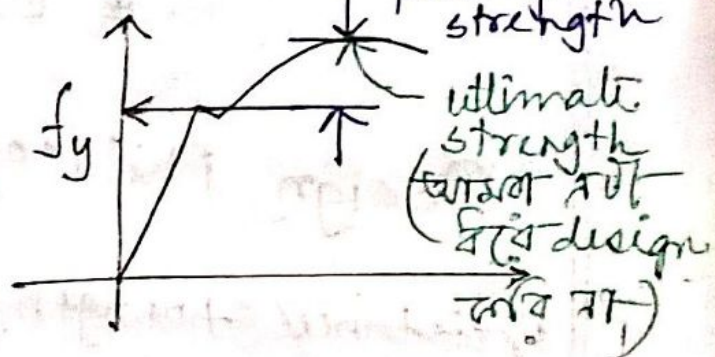 strength
fy
ultimate
strength
(আমরা এটা
ধরে design
করি না)